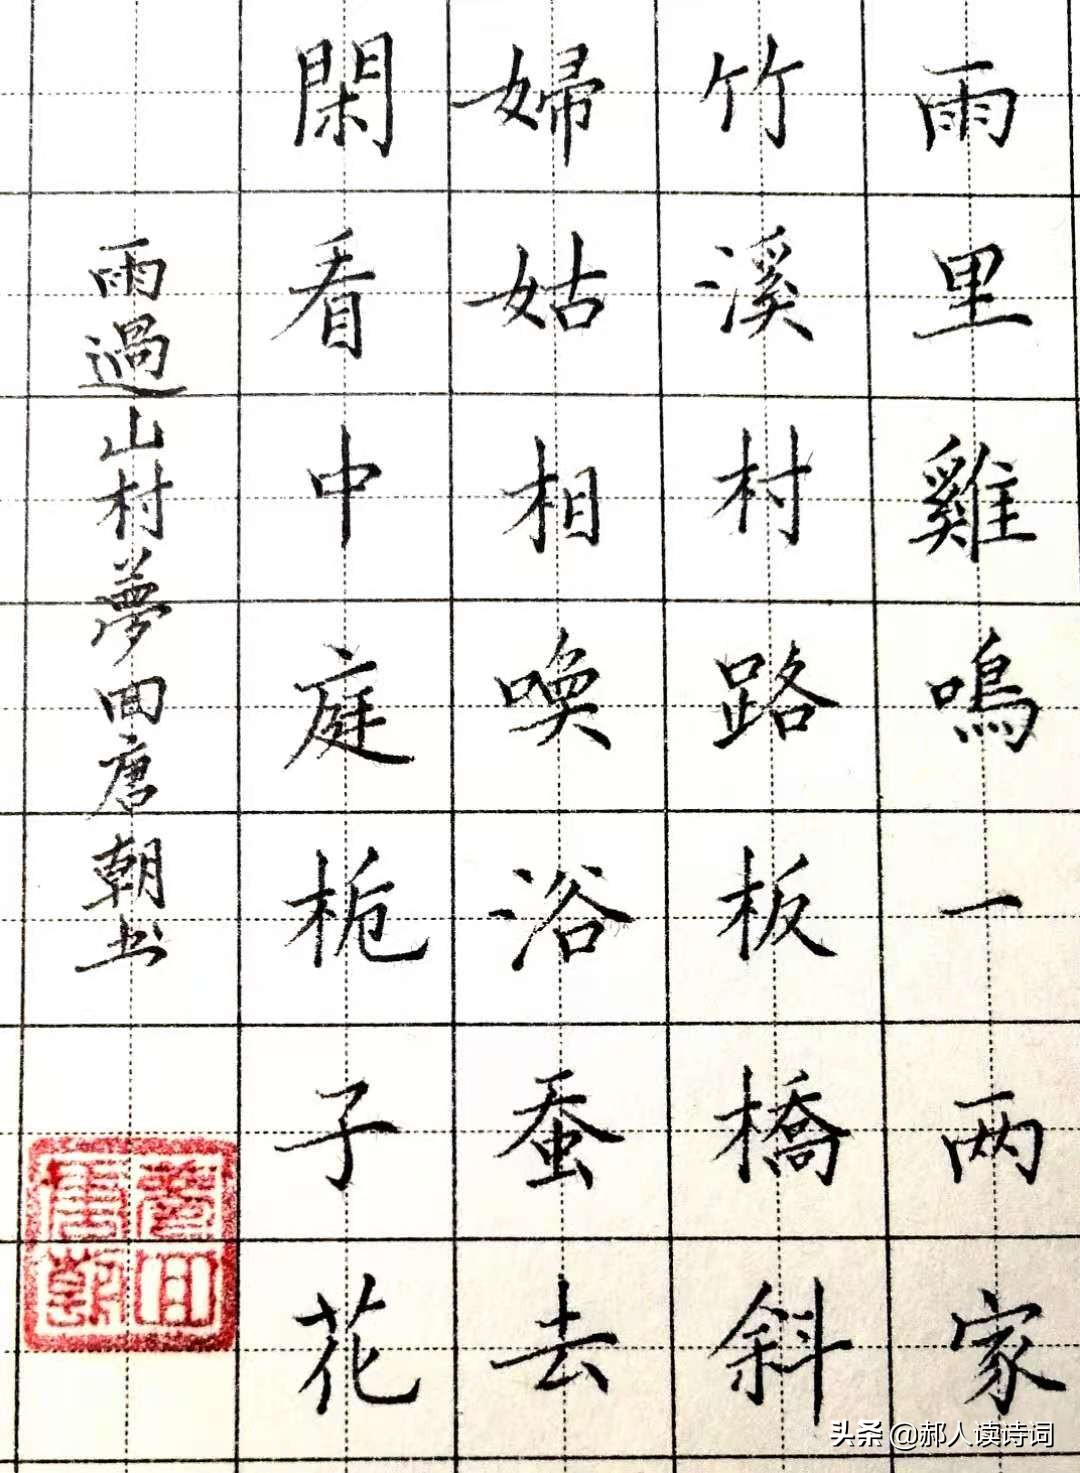 雨里雞鳴一两家
竹溪村路板橋斜
婦姑相喚浴蚕去
閑看中庭栀子花
雨過山村夢回唐朝书
夢回唐朝
头条 @郝人读诗词